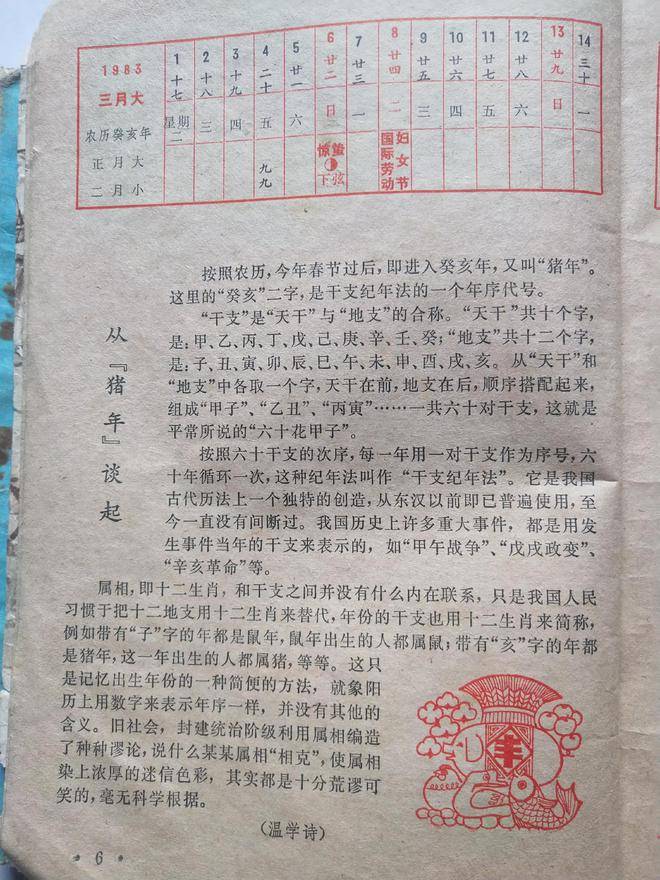 1983
三月大
农历癸亥年
正月大
二月小
1 2 3 4 5 6 7 8 9 10 11 12 13 14
十七 十八 十九 二十 廿一 廿二 廿三 廿四 廿五 廿六 廿七 廿八 廿九 三十
星期二 三 四 五 六 日 一 二 三 四 五 六 日 一
九九
惊蛰
下弦
国际劳动
妇女节
从『猪年』谈起
按照农历，今年春节过后，即进入癸亥年，又叫“猪年”。
这里的“癸亥”二字，是干支纪年法的一个年序代号。
“干支”是“天干”与“地支”的合称。“天干”共十个字，
是：甲、乙、丙、丁、戊、己、庚、辛、壬、癸；“地支”共十二个字，
是：子、丑、寅、卯、辰、巳、午、未、申、酉、戌、亥。从“天干”和
“地支”中各取一个字，天干在前，地支在后，顺序搭配起来，
组成“甲子”、“乙丑”、“丙寅”……一共六十对干支，这就是
平常所说的“六十花甲子”。
按照六十干支的次序，每一年用一对干支作为序号，六
十年循环一次，这种纪年法叫作“干支纪年法”。它是我国
古代历法上一个独特的创造，从东汉以前即已普遍使用，至
今一直没有间断过。我国历史上许多重大事件，都是用发
生事件当年的干支来表示的，如“甲午战争”、“戊戌政变”、
“辛亥革命”等。
属相，即十二生肖，和干支之间并没有什么内在联系，只是我国人民
习惯于把十二地支用十二生肖来替代，年份的干支也用十二生肖来简称，
例如带有“子”字的年都是鼠年，鼠年出生的人都属鼠；带有“亥”字的年都
是猪年，这一年出生的人都属猪，等等。这只
是记忆出生年份的一种简便的方法，就象阳
历上用数字来表示年序一样，并没有其他的
含义。旧社会，封建统治阶级利用属相编造
了种种谬论，说什么某某属相“相克”，使属相
染上浓厚的迷信色彩，其实都是十分荒谬可
笑的，毫无科学根据。
丰
（温学诗）
• 6 •